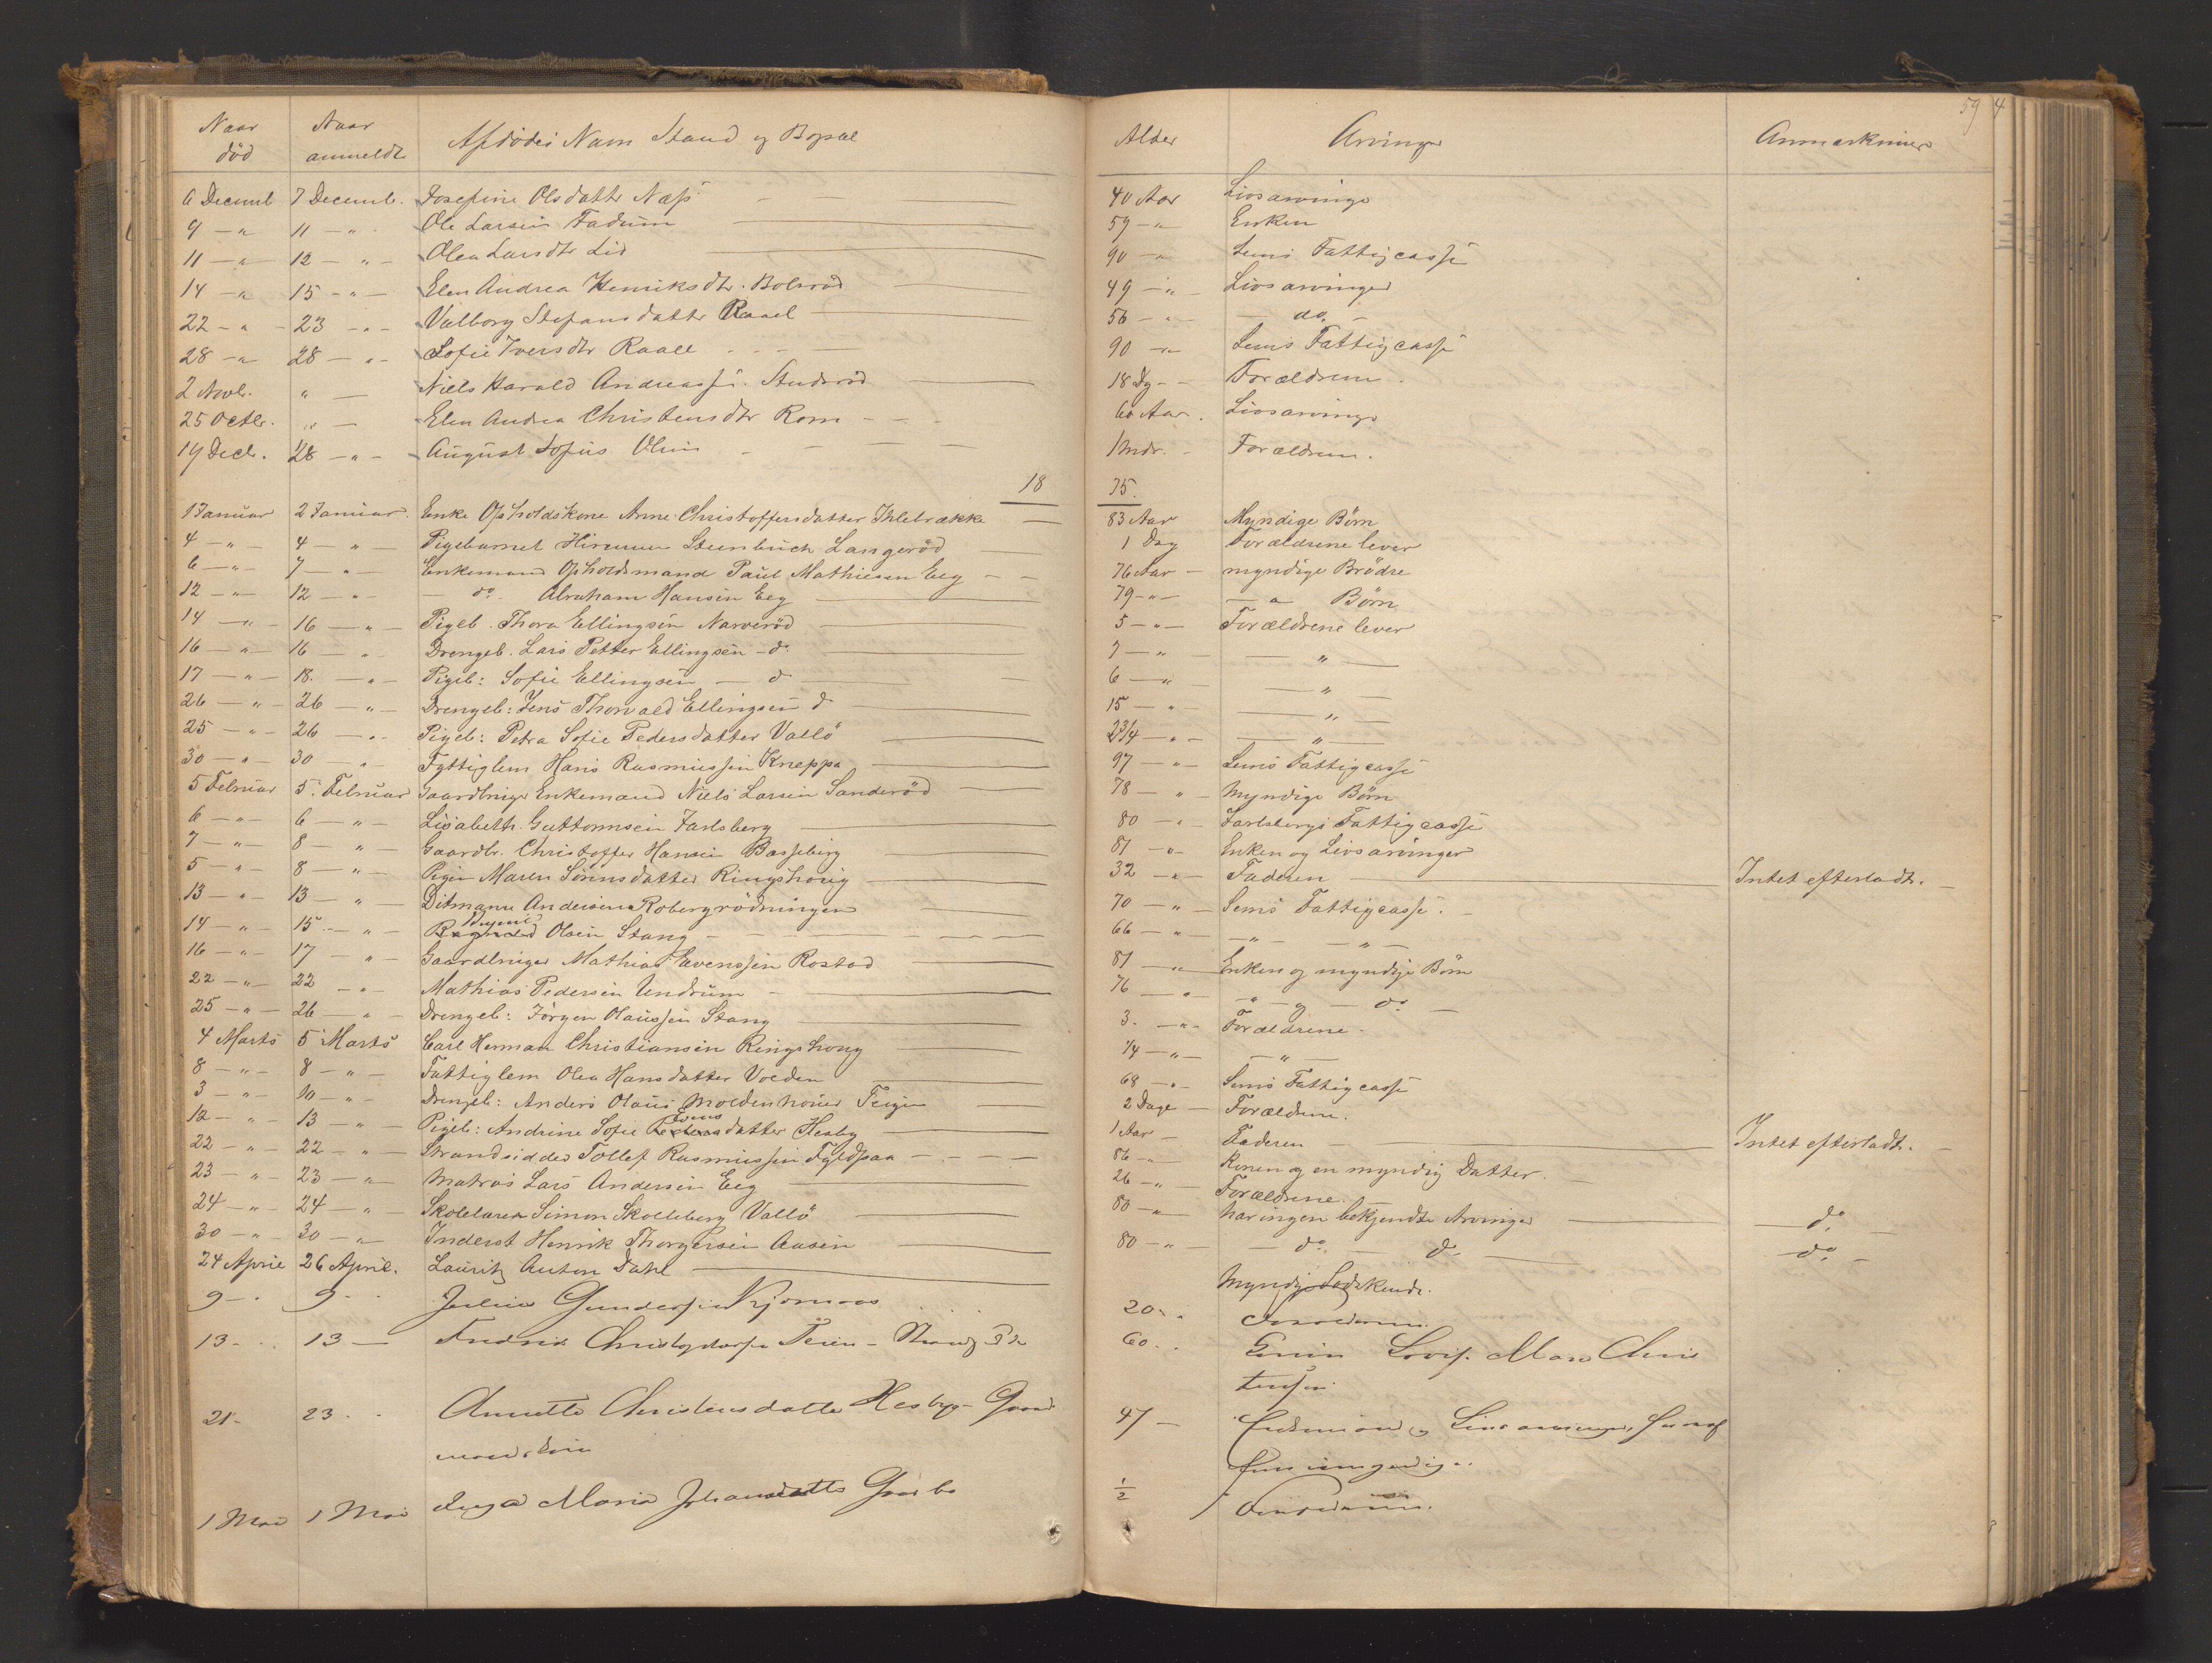 Naar død Naar anmeldt Afdødes Navn Stand og Bopæl
6 Decemb 7 Decemb. Josefine Olsdattr Næss
9 — " 11 — " Ole Larsen Fadum
11 — " — 12 — " — Olea Larsdtr Lid
14 — " 15 — " — Elen Andrea Henriksdtr. Bolsrød
22 — " — 23 — " — Valborg Stefansdattr Raael
28 — " 28 — " Sofie Iversdtr Raael
2 Novbr. " — Niels Harald Andreassen
25 Octbr. " — Elen Andrea Christensdtr Rom
19 Decb. 28 — " — August Sofus Olsen
18
1 Januar 2 Januar. Enke Opholdskone Anne Christoffersdatter Ihlebrække
4 — " — 4 — " — Pigebarnet Steenbuch Langerød
6 — " — 7 — " — Enkemand Opholdsmand Paul Mathiesen Eeg
12 — " — 12 — " — — do. Abraham Hansen Eeg
14 — " — 16 — " — Pigeb. Thora Ellingsen Narverød
16 — " — 16 — " Drengeb. Lars Petter Ellingsen — do
17 — " — 18. — " — Pigeb: Sofie Ellingsen — do
26 — " — 26 — " — Drengeb: Jens Thorvald Ellingsen do
25 — " — 26 — " — Pigeb: Petra Sofie Pedersdatter Vallö
30 — " — 30 — " Fattiglem Hans Rasmussen Kneppa
5 Februar 5. Februar Gaardbruger Enkemand Niels Larsen Sanderød
6 — " — 6 — " — Lisabeth Guttormsen Jarlsberg
7 — " — 8 — " — Gaardbr. Christoffer Hansen Basseberg
5 — " — 8 — " — Pigen Maren Sörensdatter Ringshoug
13 — " — 13 — " — Ditmann Andersen Robergrödningen
14 — " — 15 — " — Olsen Stang
16 — " — 17 — " — Gaardbruger Mathias Evenssen Rostad
22 — " — 22 — " — Mathias Pedersen Undrum
25 — " — 26 — " — Drengeb: Jörgen Olaussen Stang
4 Marts 5 Marts Carl Herman Christiansen Ringshoug
8 — " — 8 — " — Fattiglem Olea Hansdatter Volden
3 — " — 10 — " — Drengeb: Anders Olaus Moldenhouer Teigen
12 — " — 13 — " — Pigeb: Andrine Sofie datter Hesby
22 — " — 22 — " — Strandsidder Tollef Rasmussen Fyldpaa
23 — " — 23 — " — Matros Lars Andersen Eeg
24 — " — 24 — " — Skolelærer Simon Skolleborg Vallö
30 — " — 30 — " — Inderst Henrik Thorgersen Aasen
24 April 26 April. Lauritz Anton Dahl
9 — . 9 Gundersen
13 — 13 —
21 — 23 Annette Christensdatter Hesby — Gaard
1 Mai 1 Mai Inga Maria Johansdatter
59 4
Alder Arvinger Anmærkninger
40 Aar Livsarvinge
59 — " Enken
90 — " Sems Fattigcasse
49 — " — Livsarvinger
56 — " — do.
90 — " Sems Fattigcasse
18 Dg — Forældrene.
60 Aar. Livsarvinge
1 Mdr. — Forældrene.
75.
83 Aar Myndige Börn
1 Dag Forældrene lever
76 Aar — myndige Brödre
79 — " — — " Börn
5 — " — Forældrene lever
7 — " — "
6 — " — "
15 — " — "
2 3/4 — " — "
97 — " — Sems Fattigcasse
78 — " — Myndige Börn
80 — " Jarlsbergs Fattigcasse
81 — " — Enken og Livsarvinger
32 — " — Faderen — Intet efterladt.
70 — " — Sems Fattigcasse.
66 — " — " — "
81 — " — Enken og myndige Börn
76 — " — " — og — do
3. — " — Forældrene.
1/4 — " — "
68 — " — Sems Fattigcasse
2 Dage — Forældrene.
1 Aar — Faderen — Intet efterladt.
86 — " Konen og en myndig Datter.
26 — " — Forældrene.
80 — " har ingen bekjendte Arvinger — do.
80 — " — do. — do. — do.
Myndige Sødskende.
20 — . Forældrene.
60 . .
47 — Enkemand og Livsarvinger,
1/2 Forældrene.